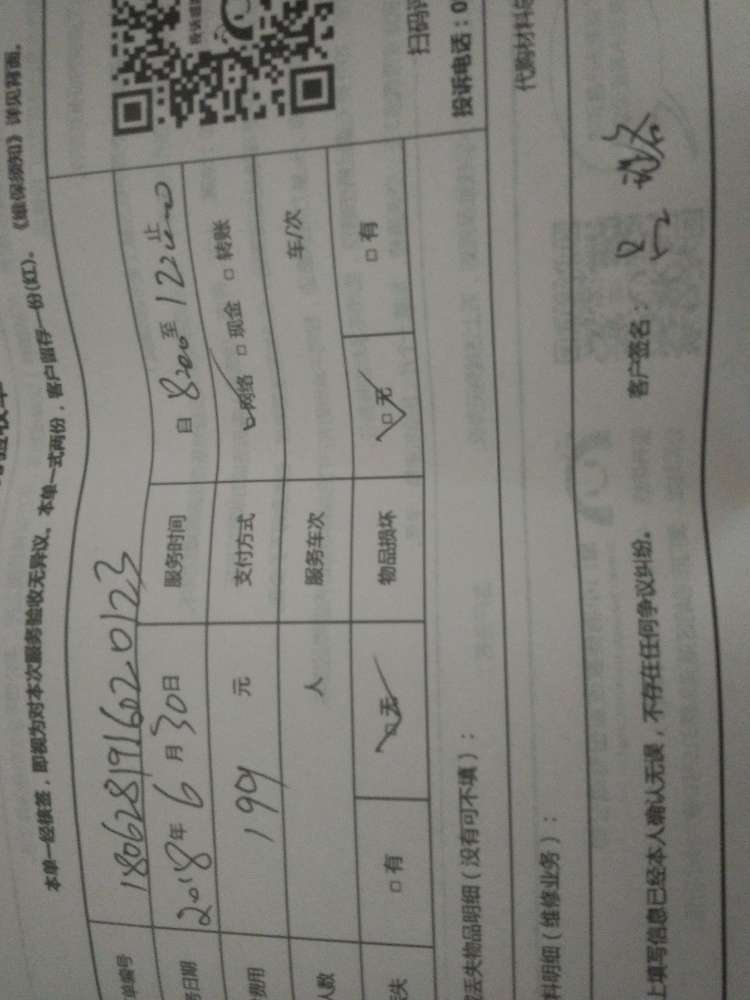 本单一经核签，即视为对本次服务验收无异议。本单一式两份，客户留存一份(红)。《维保须知》详见背面。
单编号 180628191602 0123
务日期 2018年 6 月 30日 服务时间 自 8:00 至 12:00 止
费用 199 元 支付方式 网络 □ 现金 □ 转账
人数 人 服务车次 车/次
丢失 □ 有 □ 无 物品损坏 □ 无 □ 有
丢失物品明细（没有可不填）：
扫码评
投诉电话：0
料明细（维修业务）：
代购材料
上填写信息已经本人确认无误，不存在任何争议纠纷。 客户签名：